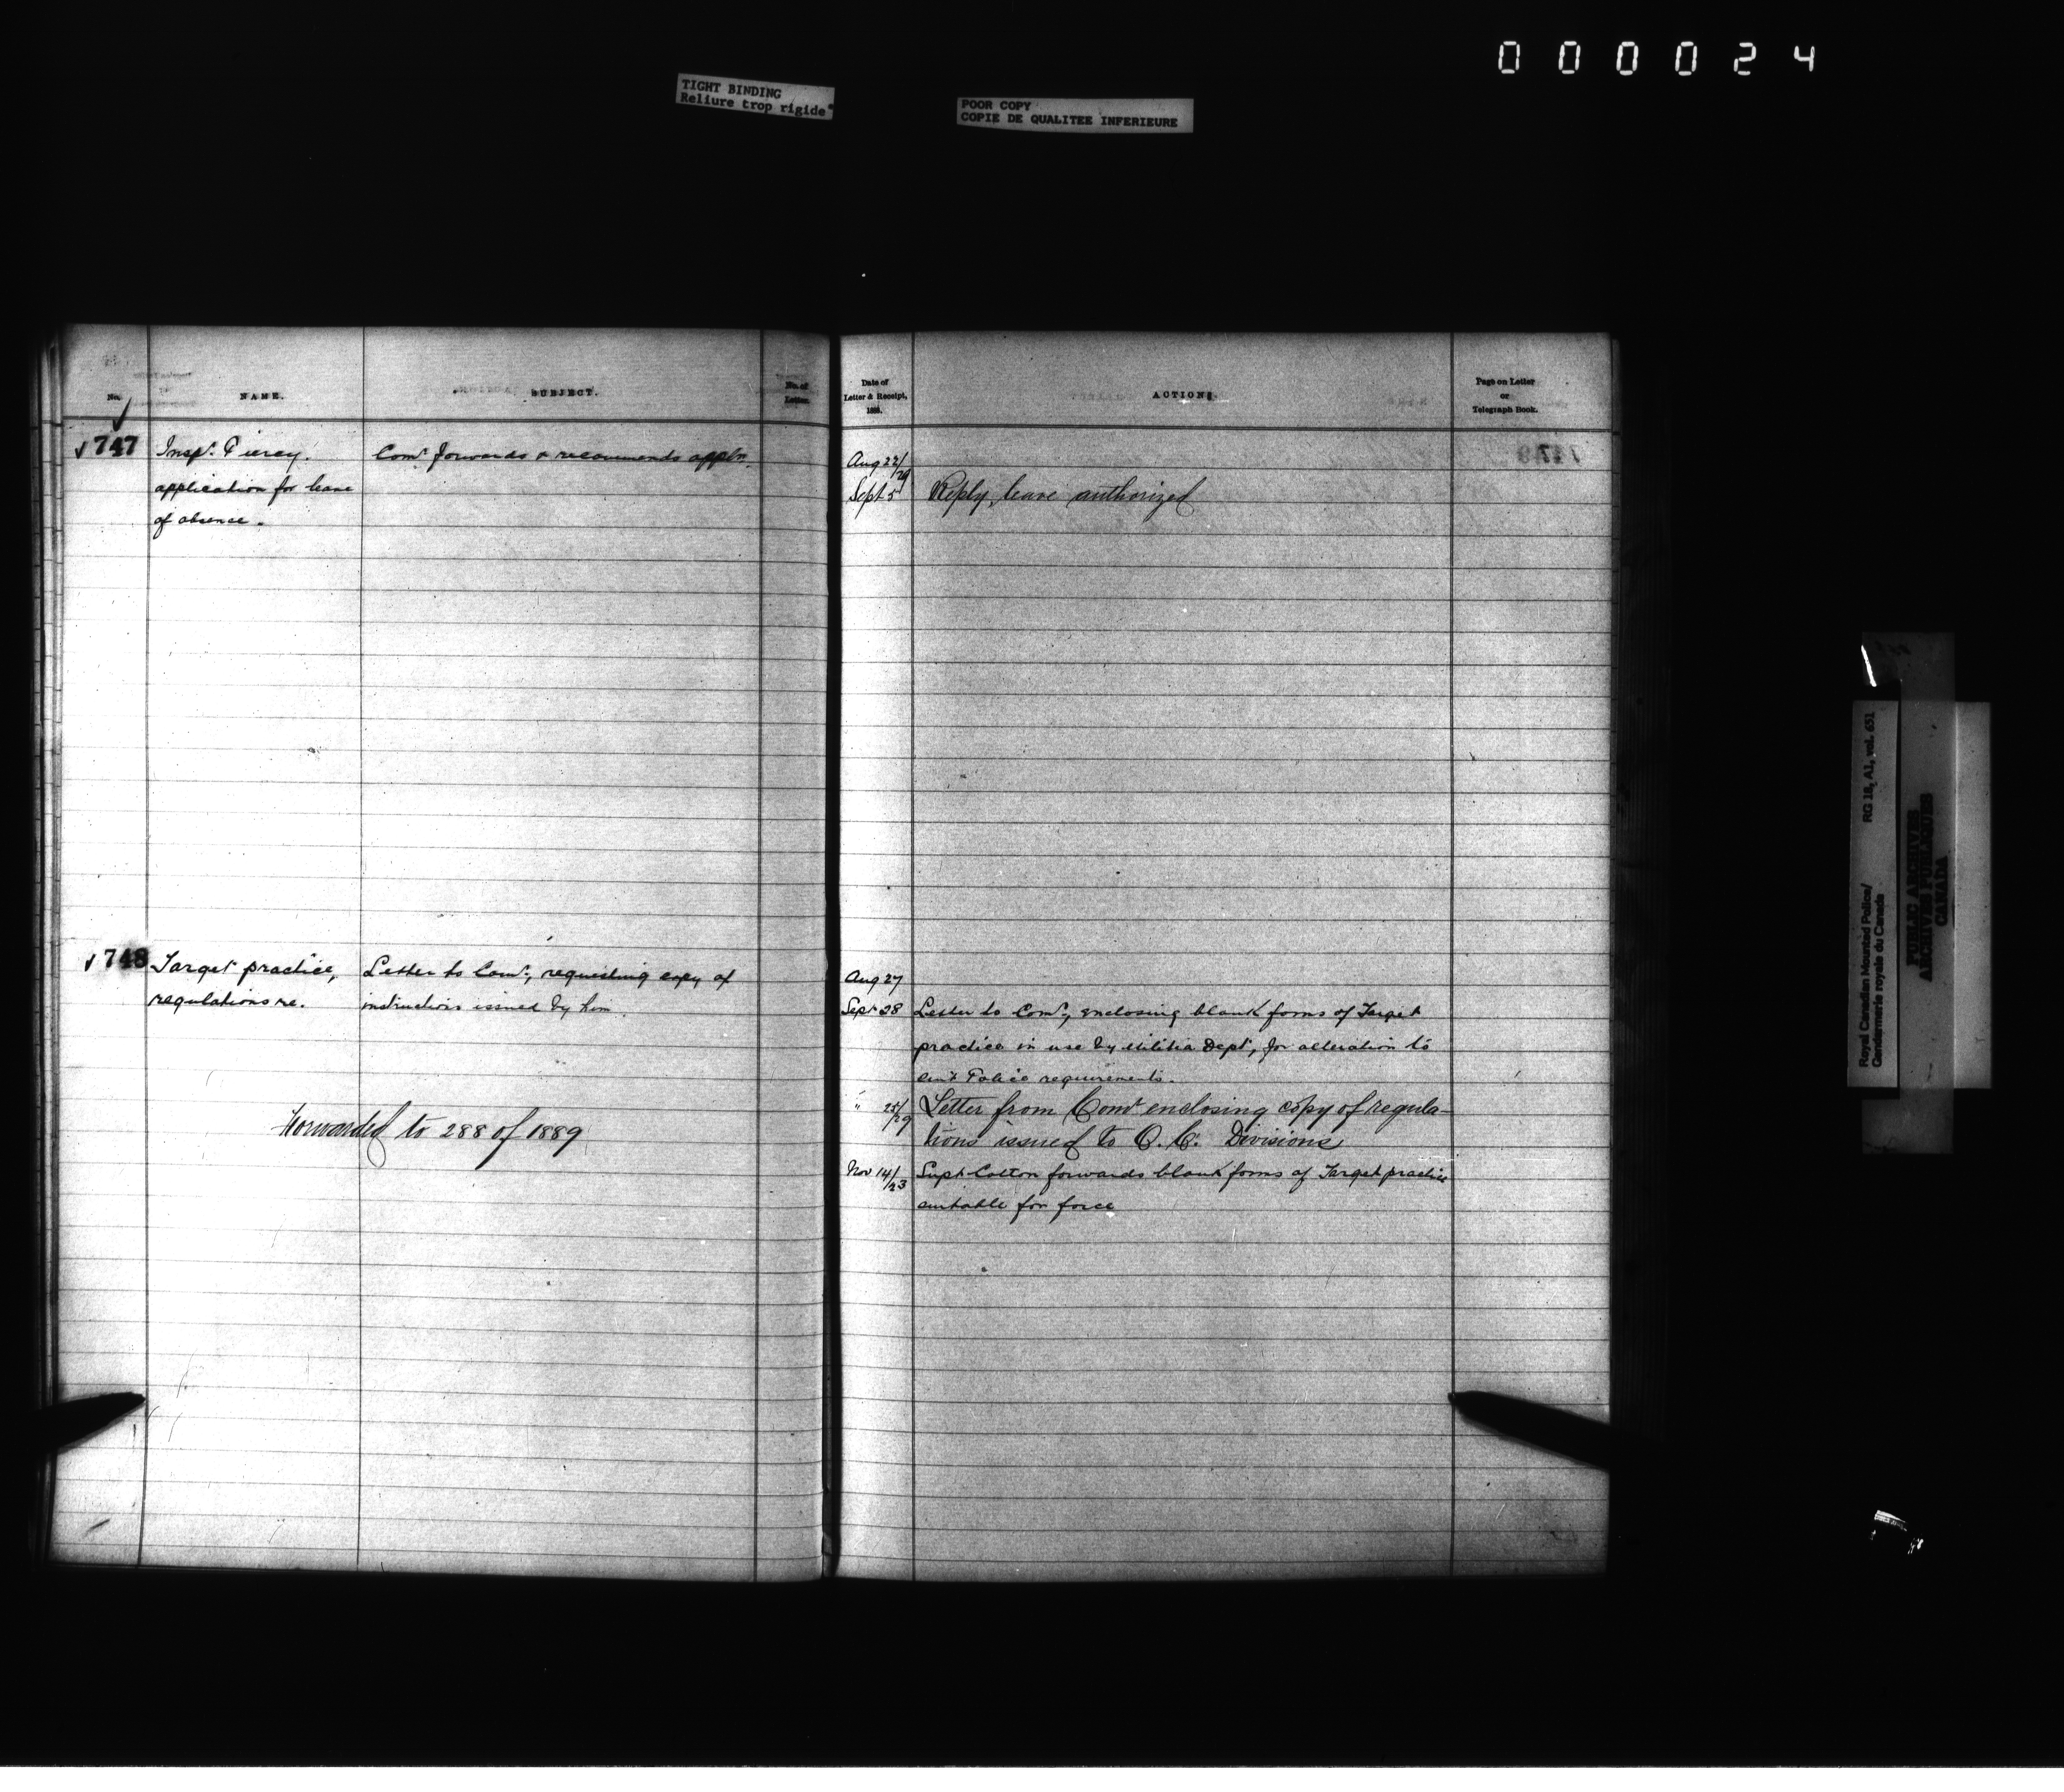 000024
TIGHT BINDING
Reliure trop rigide
POOR COPY
COPIE DE QUALITEE INFERIEURE
No.
NAME.
SUBJECT.
No. of
Letter.
747
Insp.r Piercy.
application for leave
of absence.
Com.r forwards & recommends appln.
748
Target practice,
regulations re.
Letter to Com.r, requesting copy of
instructions issued by him.
Forwarded to 288 of 1889
Date of
Letter & Receipt,
1888.
ACTIONS.
Page on Letter
or
Telegraph Book.
Aug 22/29
Sept 5 Reply, leave authorized
Aug 27
Sept 28 Letter to Com.r, enclosing blank forms of Target
practice in use by Militia Dept, for alteration to
suit Police requirements.
" 25/29 Letter from Comr enclosing copy of regula-
tions issued to O. C. Divisions
Nov 14/23 Supt Cotton forwards blank forms of Target practice
suitable for force
Royal Canadian Mounted Police/
Gendarmerie royale du Canada
RG 18, A1, vol. 631
PUBLIC ARCHIVES
ARCHIVES PUBLIQUES
CANADA